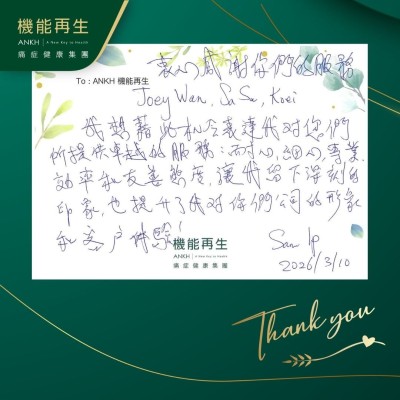 機能再生
ANKH | A New Key to Health
癌症健康集團
衷心感謝你們的服務
To : ANKH 機能再生
Joey Wan, Su Su, Koei
我想藉此机会表達我对您們
所提供卓越的服務：耐心,細心,專業,
効率和友善態度,讓我留下深刻的
印象,也提升了我对你們公司的形象
和客户体驗!
機能再生
ANKH | A New Key to Health
癌症健康集團
San Ip
2026/3/10
Thank you